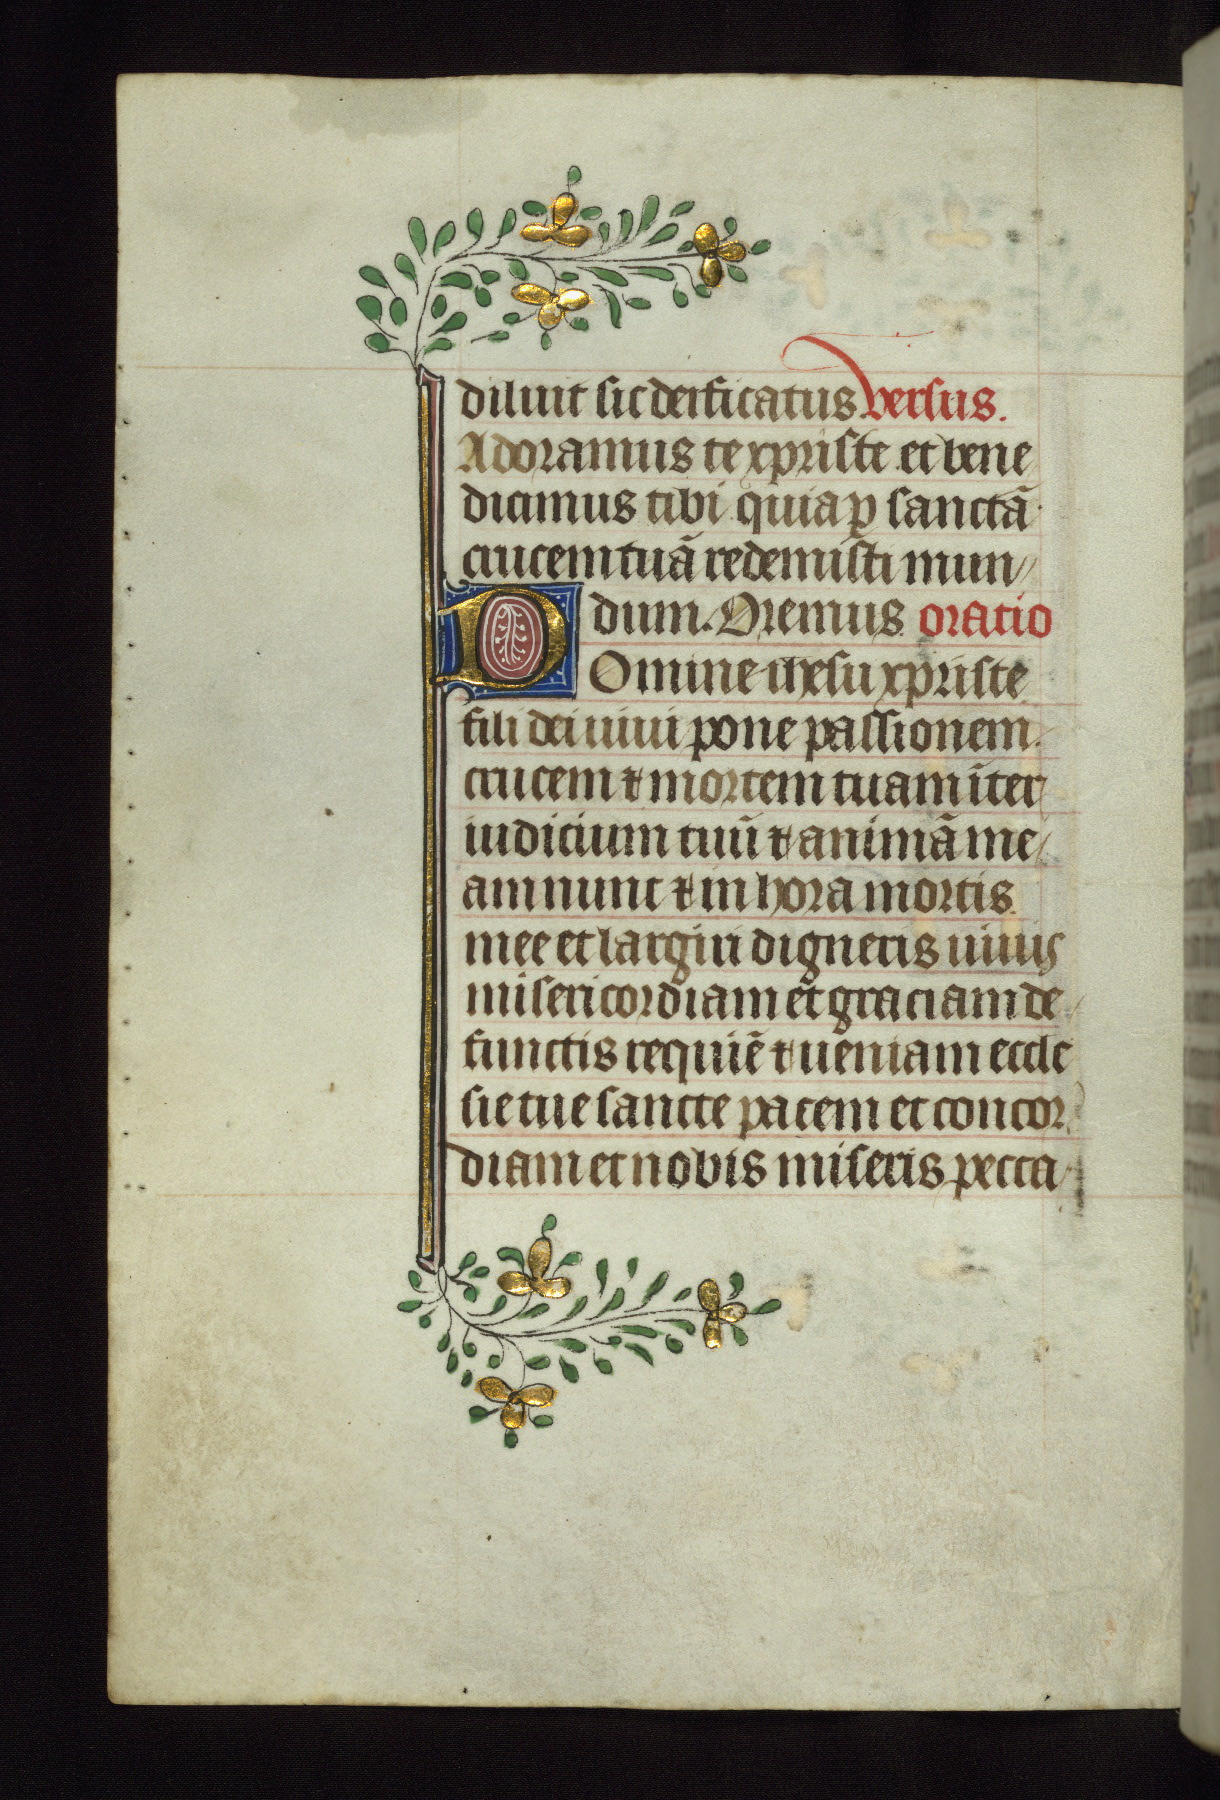 diluit sic deificatus versus.
Adoramus te xpriste et bene
dicimus tibi quia p̱ sanctā
crucem tuā redemisti mun
dum. Oremus oratio
Domine ihesu xpriste
fili dei uiui pone passionem.
crucem ⁊ mortem tuam īter
iudicium tuū ⁊ animā me
am nunc ⁊ in hora mortis
mee et largiri digneris uiuis
misericordiam et graciam de
functis requiē ⁊ ueniam eccle
sie tue sancte pacem et concor
diam et nobis miseris pecca